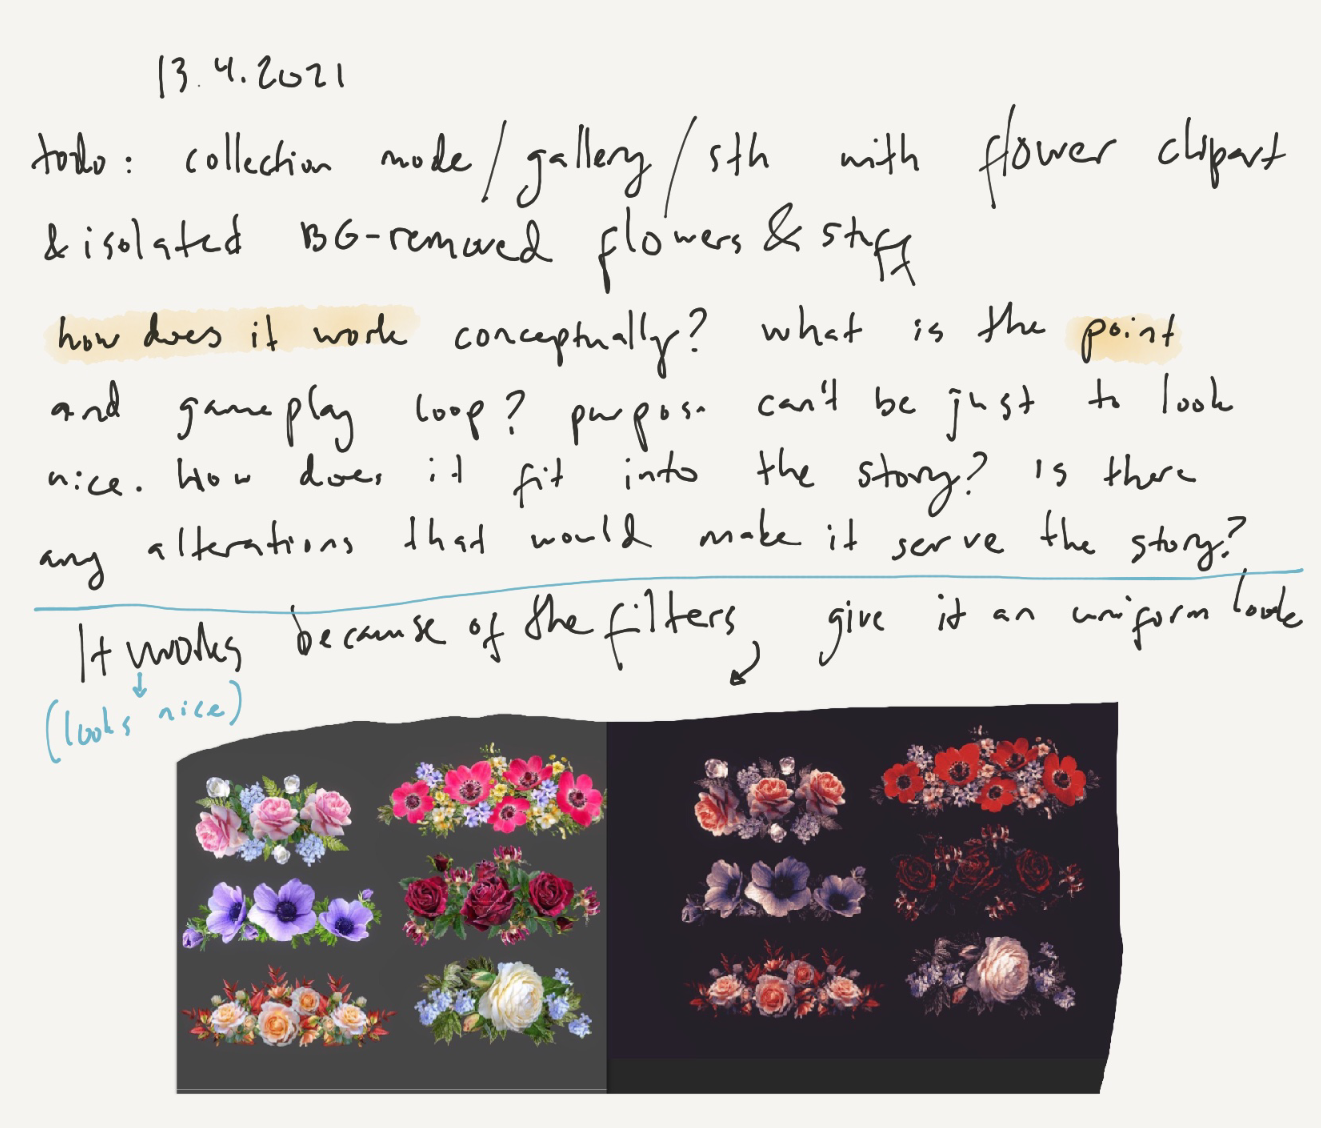 13.4.2021
todo: collection mode/gallery/sth with flower clipart
& isolated BG-removed flowers & stuff
how does it work conceptually? what is the point
and gameplay loop? purpose can't be just to look
nice. How does it fit into the story? is there
any alterations that would make it serve the story?
It works because of the filters, give it an uniform look
(looks nice)